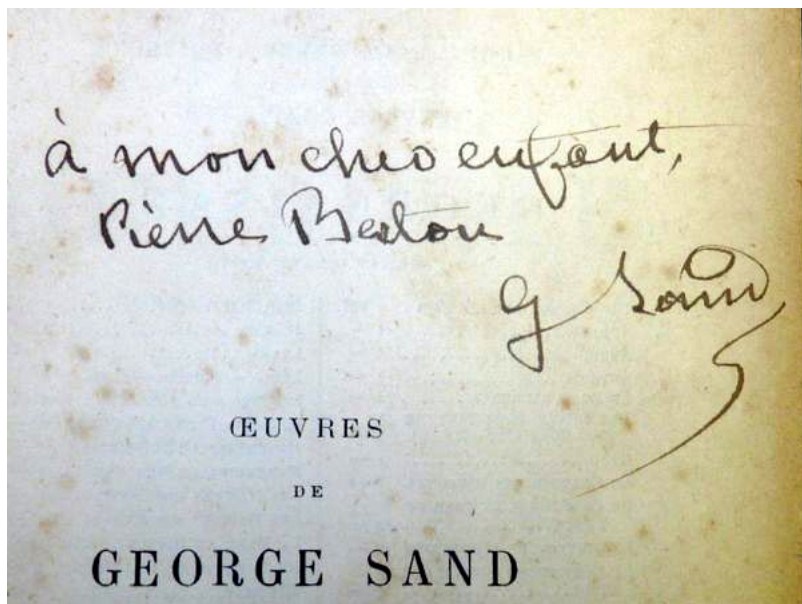 à mon cher enfant,
Pierre Berton
G Sand
ŒUVRES
DE
GEORGE SAND